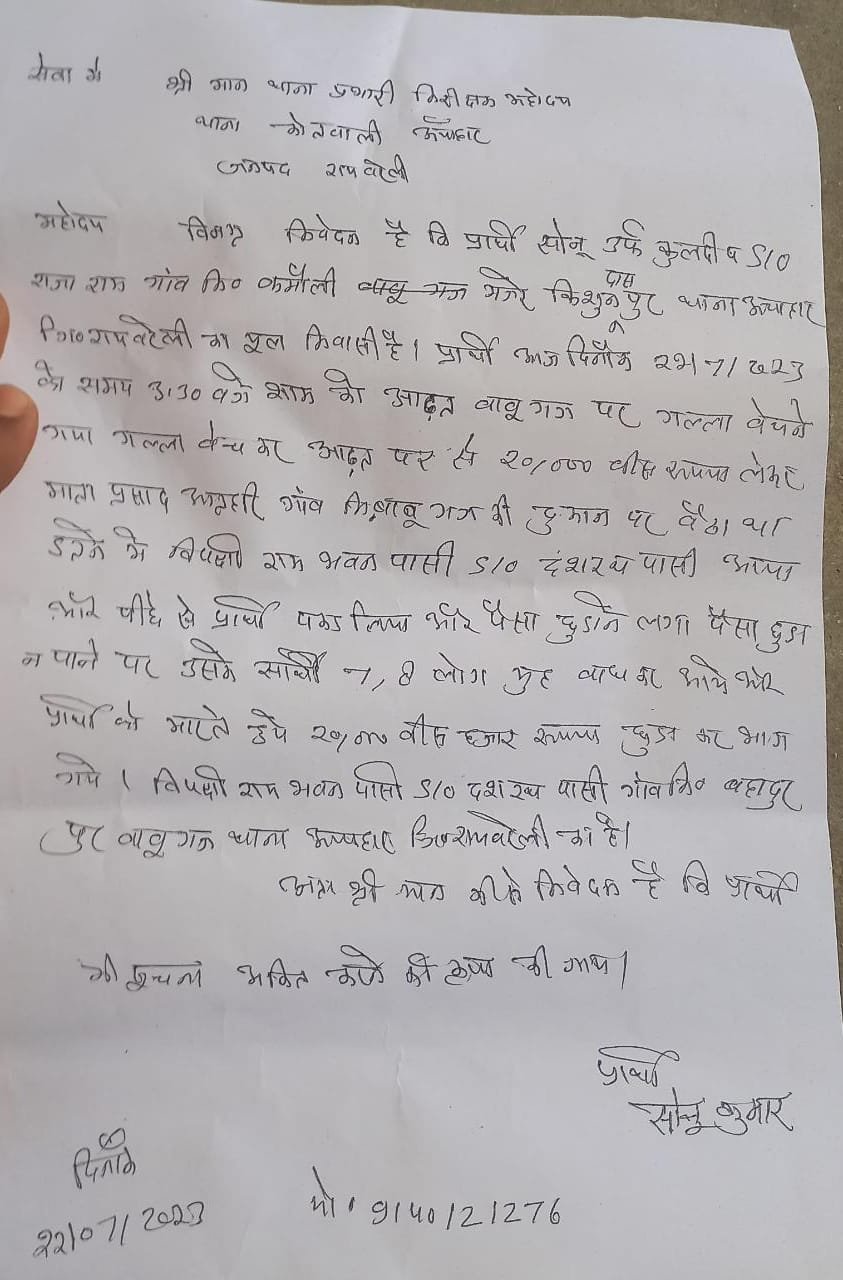 सेवा में
श्री मान थाना प्रभारी निरीक्षक महोदय
थाना कोतवाली ऊँचाहार
जनपद रायबरेली
महोदय विनम्र निवेदन है कि प्रार्थी सोनू उर्फ कुलदीप S/O
राजा राम गांव नि० कमौली मजरे किशुनदासपुर थाना ऊचाहार
जि० रायबरेली का मूल निवासी है। प्रार्थी आज दिनाँक 22/7/2023
को समय 3:30 बजे शाम को आढ़त बाबू गज पर गल्ला बेचने
गया गल्ला बेच कर आढ़त पर से २०,००० बीस रूपया लेकर
माता प्रसाद अग्रहरी गाँव नि० बाबू गज की दुकान पर बैठा था
इतने मे विपक्षी राम भवन पासी S/O दशरथ पासी आया
और पीछे से प्रार्थी पकड लिया और पैसा छुडाने लगा पैसा छुडा
न पाने पर उसके साथी 7, 8 लोग मुह बाध कर आये और
प्रार्थी को मारते हुये २०,००० बीस हजार रूपया छुडा कर भाग
गये। विपक्षी राम भवन पासी S/O दशरथ पासी गाँव नि० बहादुर
पुर बाबू गज थाना ऊचाहार जि० रायबरेली का है।
अतः श्री मान जी से निवेदन है कि प्रार्थी
की सूचना अंकित करने की कृपा की जाय।
प्रार्थी
सोनू कुमार
दिनाँक
22/07/2023
मो. 9140121276